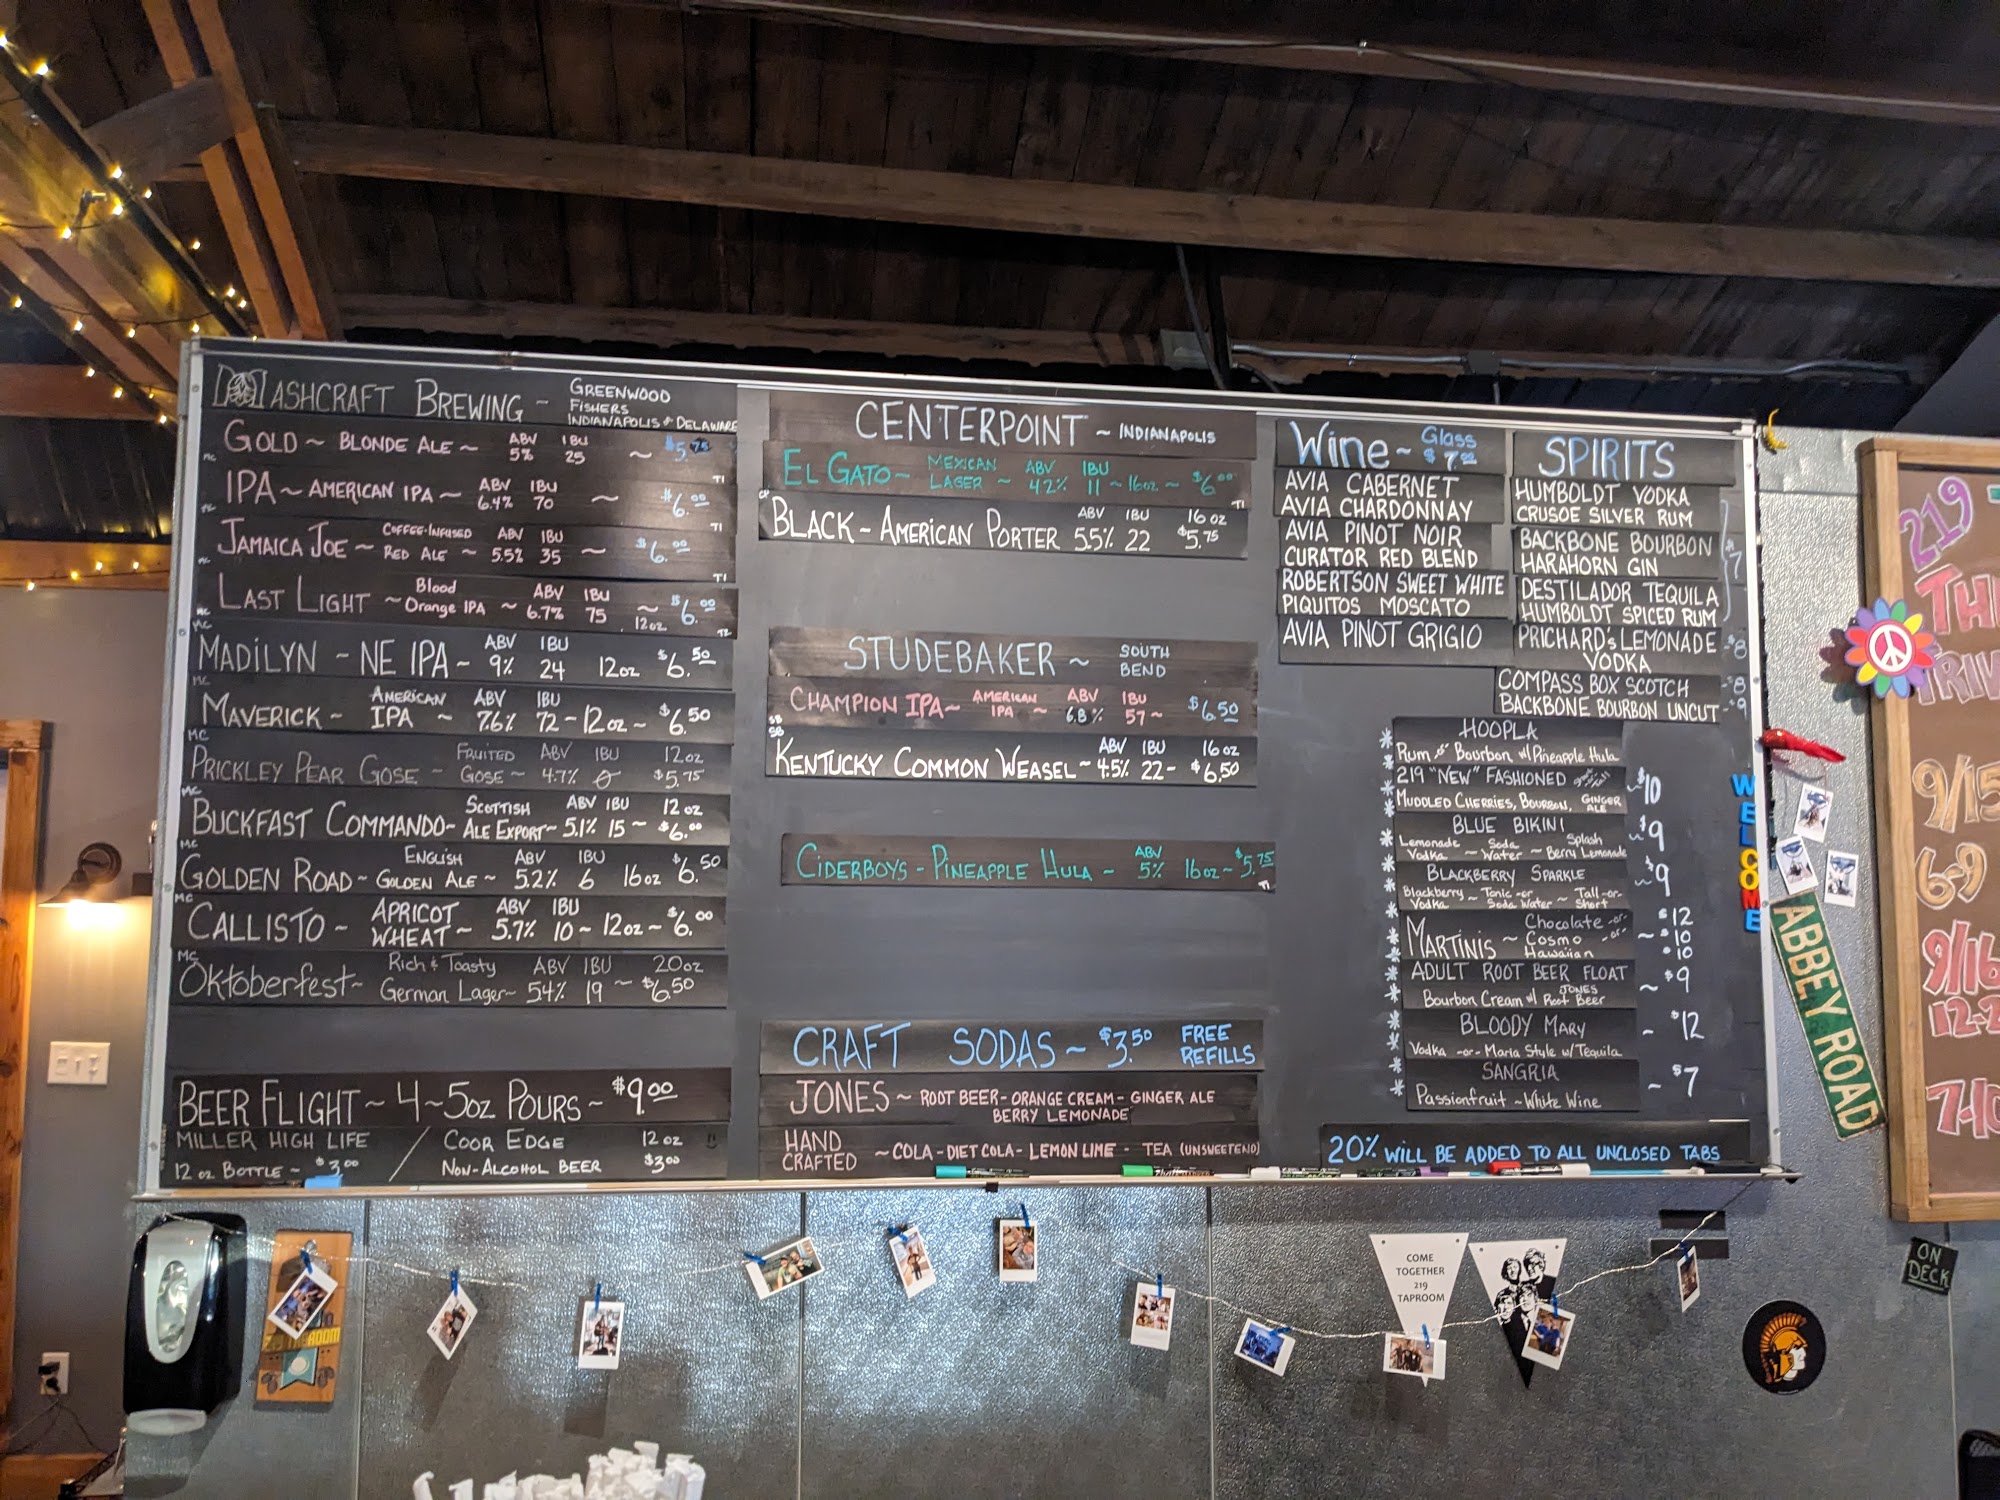 MASHCRAFT BREWING - GREENWOOD
FISHERS
INDIANAPOLIS & DELAWARE
GOLD ~ BLONDE ALE ~ ABV 5% IBU 25 ~ $5.75
MC
TI
IPA ~ AMERICAN IPA ~ ABV 6.4% IBU 70 ~ $6.00
TI
JAMAICA JOE ~ COFFEE-INFUSED RED ALE ~ ABV 5.5% IBU 35 ~ $6.00
MC
TI
LAST LIGHT ~ Blood Orange IPA ~ ABV 6.7% IBU 75 ~ 12oz $6.00
MC
T2
MADILYN - NE IPA ~ ABV 9% IBU 24 12oz $6.50
MC
MAVERICK ~ AMERICAN IPA ~ ABV 7.6% IBU 72 - 12oz ~ $6.50
MC
PRICKLEY PEAR GOSE - FRUITED GOSE ~ ABV 4.7% IBU 0 12oz $5.75
MC
BUCKFAST COMMANDO - SCOTTISH ALE EXPORT ~ ABV 5.1% IBU 15 ~ 12oz $6.00
MC
GOLDEN ROAD ~ ENGLISH GOLDEN ALE ~ ABV 5.2% IBU 6 16oz $6.50
MC
CALLISTO ~ APRICOT WHEAT ~ ABV 5.7% IBU 10 ~ 12oz ~ $6.00
MC
Oktoberfest ~ Rich & Toasty German Lager ~ ABV 5.4% IBU 19 ~ 20oz $6.50
BEER FLIGHT ~ 4~5oz POURS ~ $9.00
MILLER HIGH LIFE
12 oz BOTTLE ~ $3.00
/
COOR EDGE 12oz
NON-ALCOHOL BEER $3.00
CENTERPOINT ~ INDIANAPOLIS
EL GATO ~ MEXICAN LAGER ~ ABV 4.2% IBU 11 ~ 16oz ~ $6.00
CP
TI
BLACK - AMERICAN PORTER ABV 5.5% IBU 22 16oz $5.75
STUDEBAKER ~ SOUTH BEND
CHAMPION IPA ~ AMERICAN IPA ~ ABV 6.8% IBU 57 ~ $6.50
SB
SB
KENTUCKY COMMON WEASEL ~ ABV 4.5% IBU 22 - 16oz $6.50
CIDERBOYS - PINEAPPLE HULA ~ ABV 5% 16oz ~ $5.75
TI
CRAFT SODAS ~ $3.50 FREE REFILLS
JONES ~ ROOT BEER - ORANGE CREAM - GINGER ALE
BERRY LEMONADE
HAND CRAFTED ~ COLA - DIET COLA - LEMON LIME - TEA (UNSWEETEND)
Wine ~ Glass $7.00
AVIA CABERNET
AVIA CHARDONNAY
AVIA PINOT NOIR
CURATOR RED BLEND
ROBERTSON SWEET WHITE
PIQUITOS MOSCATO
AVIA PINOT GRIGIO
SPIRITS
HUMBOLDT VODKA
CRUSOE SILVER RUM
BACKBONE BOURBON
HARAHORN GIN
$7
DESTILADOR TEQUILA
HUMBOLDT SPICED RUM
PRICHARD'S LEMONADE VODKA - $8
COMPASS BOX SCOTCH - $8
BACKBONE BOURBON UNCUT - $9
HOOPLA
Rum & Bourbon w/ Pineapple Hula
219 "NEW" FASHIONED ~ $10
MUDDLED CHERRIES, BOURBON, GINGER ALE
BLUE BIKINI ~ $9
Lemonade Vodka ~ Soda Water ~ Splash Berry Lemonade
BLACKBERRY SPARKLE ~ $9
Blackberry Vodka ~ Tonic -or- Soda Water ~ Tall -or- Short
MARTINIS ~ Chocolate -or- ~ $12
Cosmo -or- $10
Hawaiian $10
ADULT ROOT BEER FLOAT ~ $9
Bourbon Cream w/ JONES Root Beer
BLOODY MARY - $12
Vodka -or- Maria Style w/Tequila
SANGRIA ~ $7
Passionfruit ~ White Wine
20% WILL BE ADDED TO ALL UNCLOSED TABS
WELCOME
ABBEY ROAD
219
TRIV
9/15
6-9
9/16
12-2
7-10
ON DECK
COME
TOGETHER
219
TAPROOM